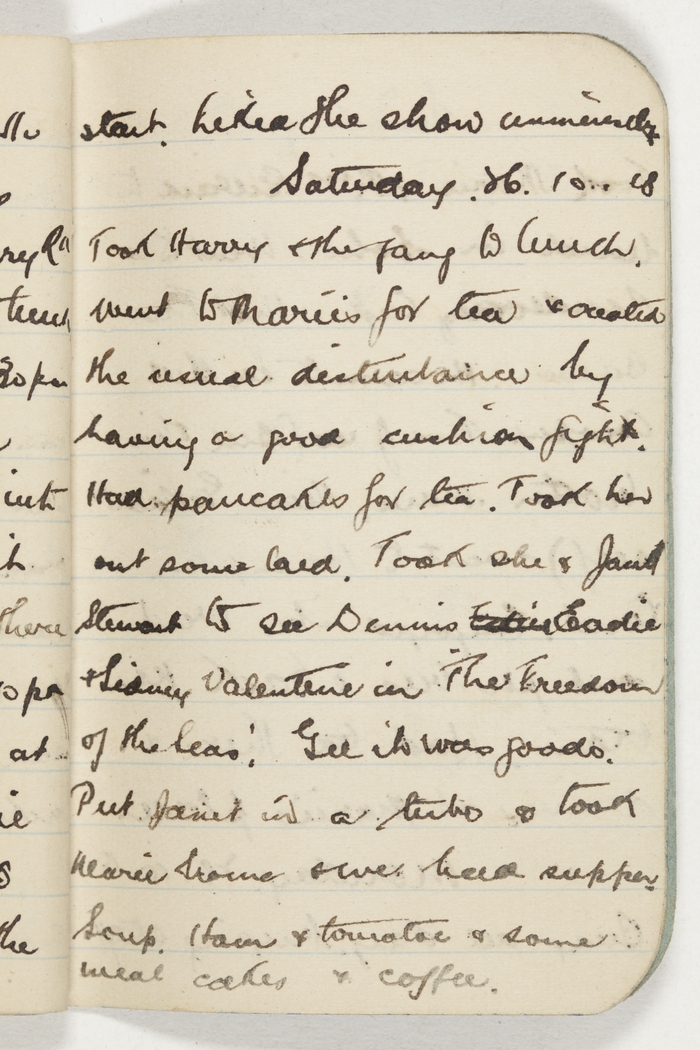 start. Liked the show immensely
Saturday. 26. 10.. 18
Took Harry & the gang to lunch.
went to Maries for tea & created
the usual disturbance by
having a good cushion fight.
Had pancakes for tea. Took her
out some lard. Took she & Janet
Stewart to see Dennis Eadie
& Sidney Valentine in 'The Freedom
of the Seas'. Gee it was goods.
Put Janet in a tube & took
Marie home & we had supper
Soup. Ham & tomatoe & some
meal cakes & coffee.